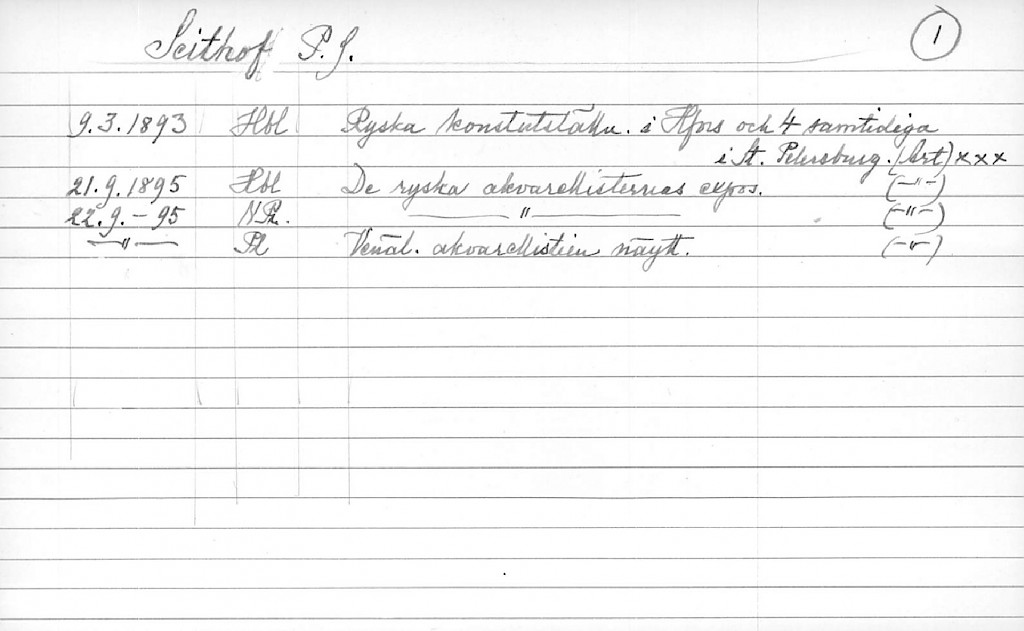 Seithof P. S. 1
9.3.1893 Hbl Ryska konstutställn. i Hfors och 4 samtidiga
i St. Petersburg. (Art) xxx
21.9.1895 Hbl De ryska akvarellisternas expos. (—"—)
22.9.-95 N Pr. ——— " ——— (—"—)
—"— Pl Venäl. akvarellistien näytt. (—"—)